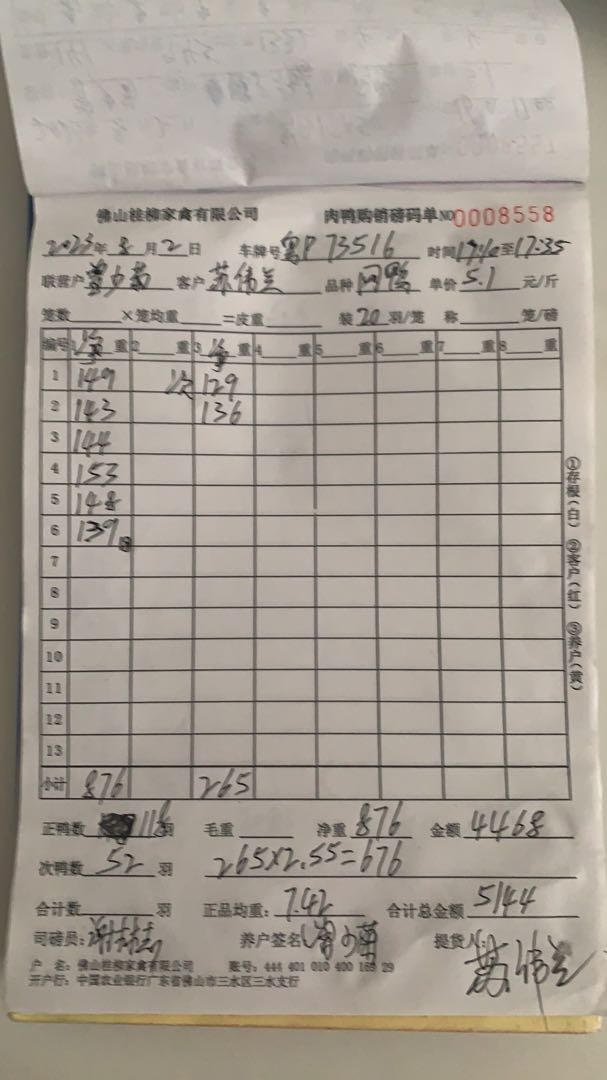 佛山桂柳家禽有限公司 肉鸭购销磅码单 NO 0008558
2023年 8月 2日 车牌号 粤P 73516 时间 17:40 至 17:35
联营户 客户 苏伟兰 品种 网鸭 单价 5.1 元/斤
笼数 ×笼均重 =皮重 装 20 羽/笼 称 笼/磅
编号 1 重 2 重 3 重 4 重 5 重 6 重 7 重 8 重
1 149 次 129
2 143 136
3 144
4 153
5 148
6 139
7
8
9
10
11
12
13
小计 876 265
正鸭数 118 羽 毛重 净重 876 金额 4468
次鸭数 52 羽 265×2.55=676
合计数 羽 正品均重: 7.42 合计总金额 5144
司磅员: 养户签名 提货人: 苏伟兰
户 名: 佛山桂柳家禽有限公司 账号: 444 401 010 400 29
开户行: 中国农业银行广东省佛山市三水区三水支行
①存根(白) ②客户(红) ③养户(黄)